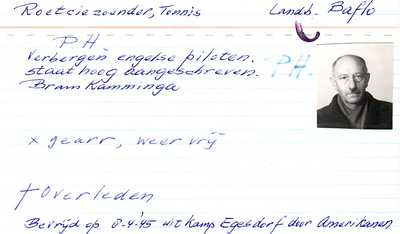 Roetciezoender, Tonnis Landb. Baflo
PH
Verbergen engelse piloten.
staat hoog aangeschreven.
PH.
Bram Kamminga
x gearr, weer vrij
† Overleden
Bevrijd op 8-4-'45 uit Kamp Egesdorf door Amerikanen